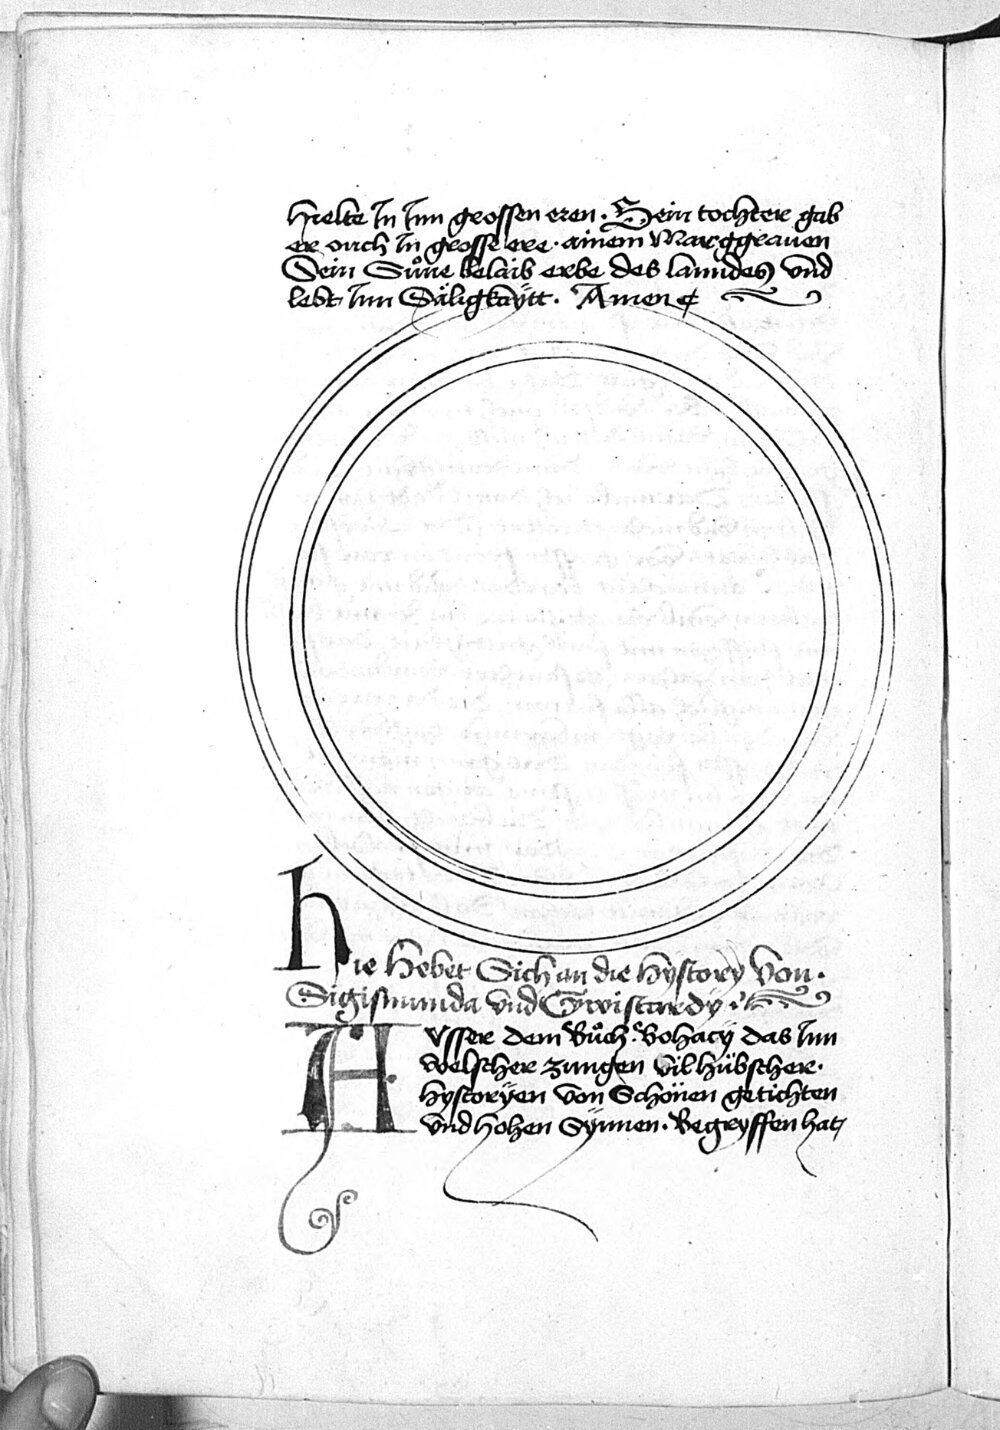 hielte In Inn grossen eren · Sein tochter gab
er ouch In grosse ere · ainem Marggrauen
Sein Sůne belaib erbe des lanndes vnd
lebt Inn Säligkaÿtt · Amen
hie hebet Sich an die hÿstorÿ von ·
Sigismunda vnd Gwiscardÿ ·
Avsser dem Bůch · Bohacÿ das Inn
welscher zungen vil hübscher ·
hÿstorÿen von Schönen getichten
vnd hohen Sÿnnen · Begrÿffen hat